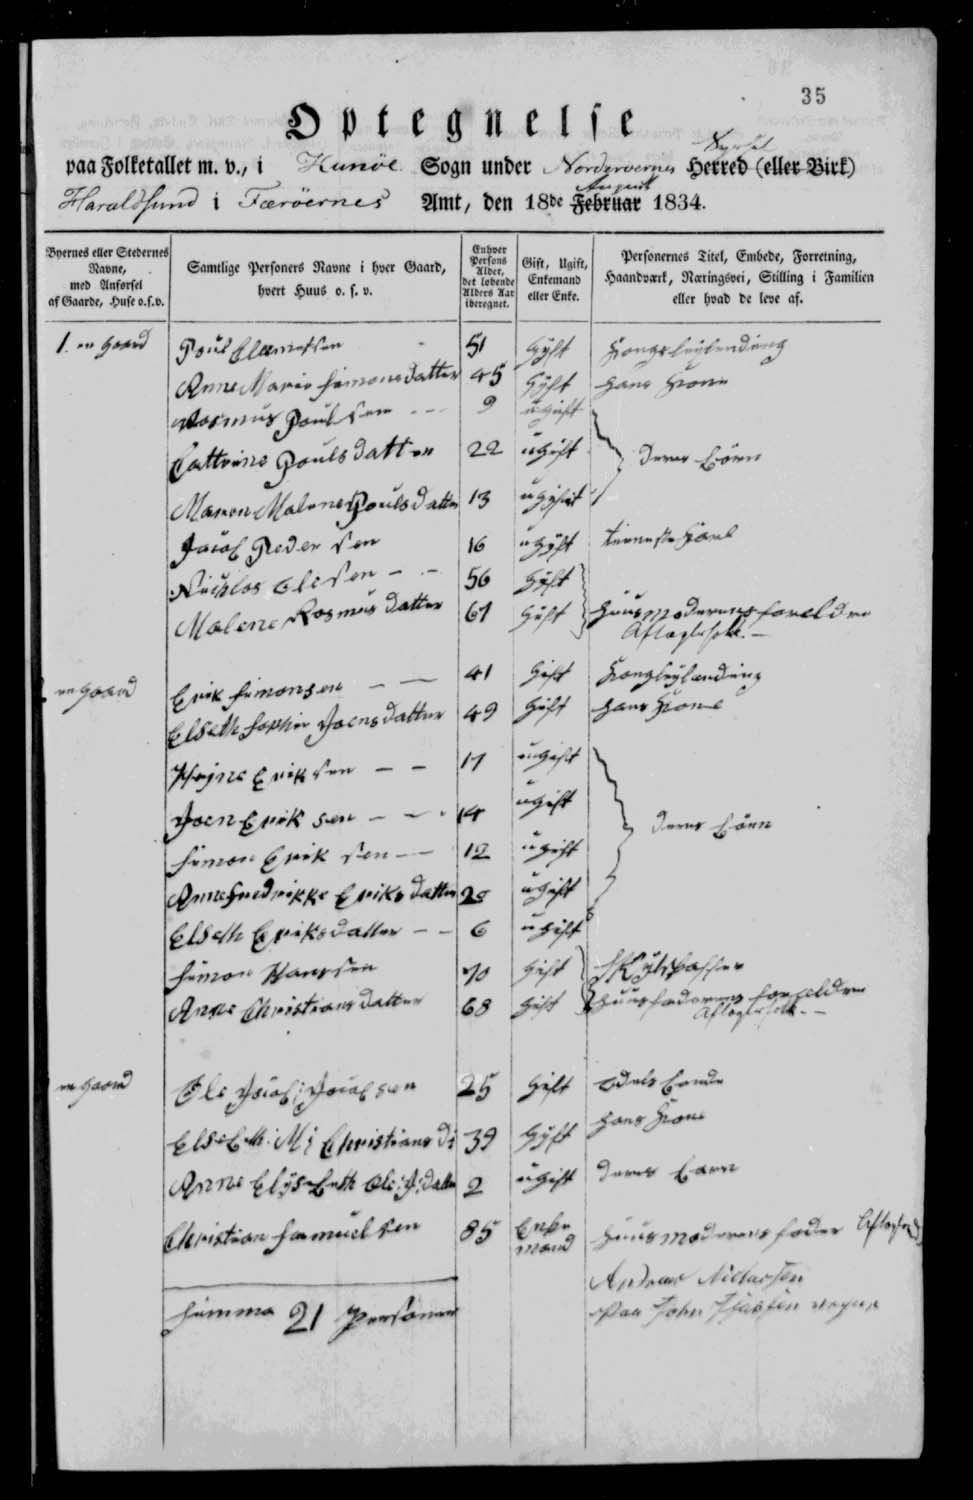 35
Optegnelse
paa Folketallet m. v., i Kunöe Sogn under Norderoernes Syssel Herred (eller Birk)
Haraldsund i Færöernes Amt, den 18de August Februar 1834.
Byernes eller Stedernes Navne, med Anførsel af Gaarde, Huse o.s.v.
Samtlige Personers Navne i hver Gaard, hvert Huus o. s. v.
Enhver Persons Alder, det løbende Alders Aar iberegnet.
Gift, Ugift, Enkemand eller Enke.
Personernes Titel, Embede, Forretning, Haandværk, Næringsvei, Stilling i Familien eller hvad de leve af.
1. en Gaard Poul Clemetsen 51 Gyft Kongsleylending
Anne Marie Simonsdatter 45 Gyft Hans Kone
Rasmus Poulsen - - - 9 ugift
Cattrine Poulsdatter 22 ugift deres Börn
Maren Malene Poulsdatter 13 ugift
Jacob Pedersen 16 ugyft
Nichlas Olesen - - 56 Gyft
Malene Rasmusdatter 67 Gyft Huusmoderens foreldre
Aftægtsfolk. -
en Gaard Erik Simonsen - - 41 Gift Kongsleylending
Elseth Sophie Joensdatter 49 Gift Hans Kone
Eriksen - - 17 ugift
Joen Eriksen - - - 14 ugift deres Börn
Simon Eriksen - - 12 ugift
Anne Fredrikke Eriksdatter 20 ugift
Elseth Eriksdatter - - 6 ugift
Simon Hansen 70 Gift
Anne Christiansdatter 68 Gift Huusfaderens foreldre
Aftægtsfolk. - -
en Gaard Ole Jacob: Jacobsen 25 Gift Odels Bonde
Elsebeth: M: Christians D: 39 Gyft Hans Kone
Anne Elysebeth Ole: J: datter 2 ugift deres Barn
Christian Samuelsen 85 Enkemand Huusmoderens fader
Summa 21 Personer
Paa John vegne